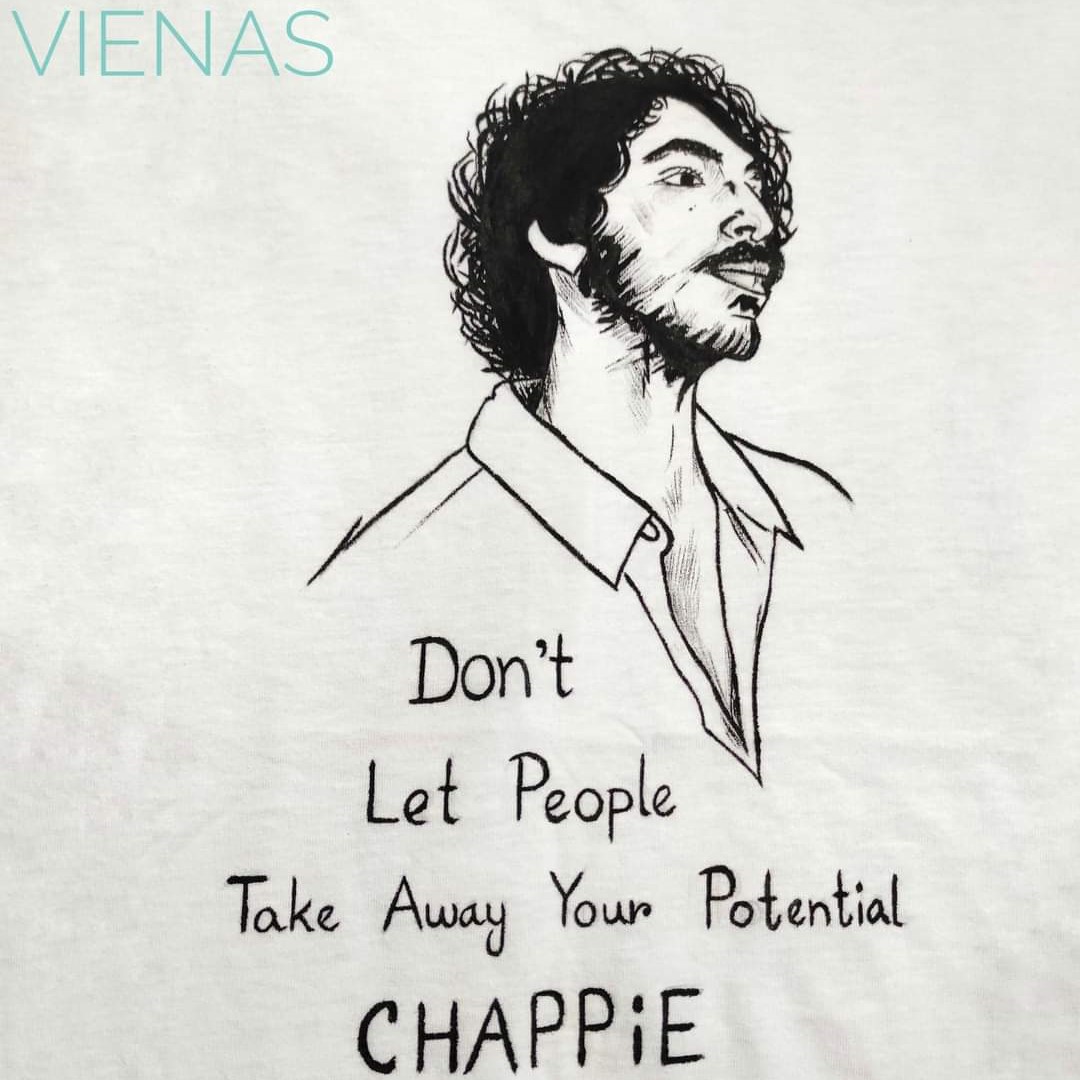 VIENAS
Don't
Let People
Take Away Your Potential
CHAPPiE